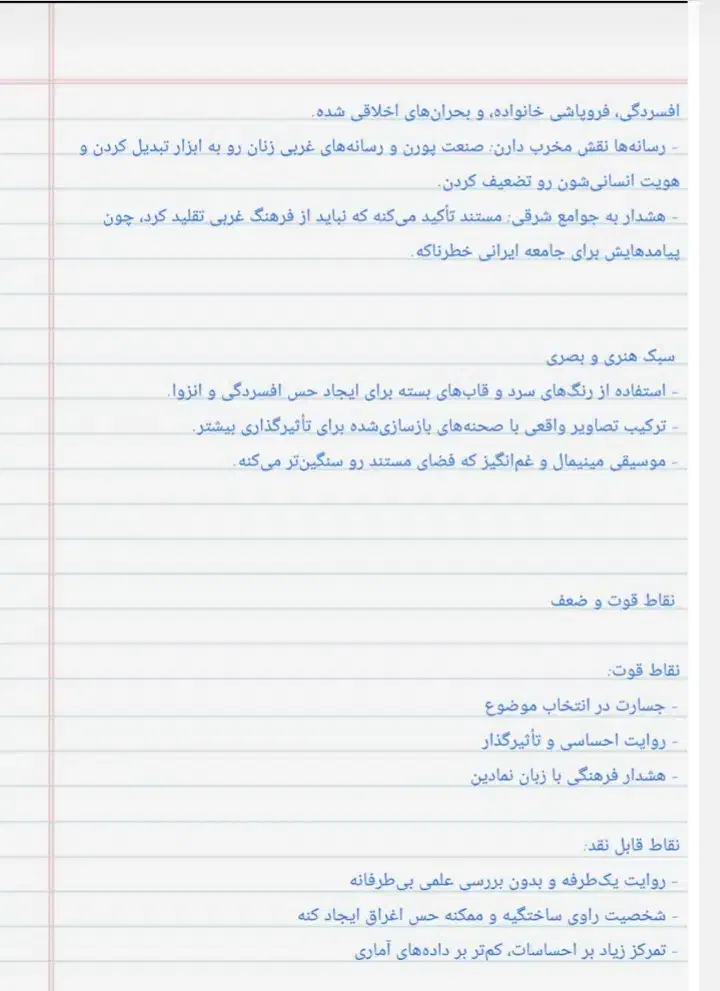 افسردگی، فروپاشی خانواده، و بحران‌های اخلاقی شده.
- رسانه‌ها نقش مخرب دارن: صنعت پورن و رسانه‌های غربی زنان رو به ابزار تبدیل کردن و
هویت انسانی‌شون رو تضعیف کردن.
- هشدار به جوامع شرقی: مستند تأکید می‌کنه که نباید از فرهنگ غربی تقلید کرد، چون
پیامدهایش برای جامعه ایرانی خطرناکه.
سبک هنری و بصری
- استفاده از رنگ‌های سرد و قاب‌های بسته برای ایجاد حس افسردگی و انزوا.
- ترکیب تصاویر واقعی با صحنه‌های بازسازی‌شده برای تأثیرگذاری بیشتر.
- موسیقی مینیمال و غم‌انگیز که فضای مستند رو سنگین‌تر می‌کنه.
نقاط قوت و ضعف
نقاط قوت:
- جسارت در انتخاب موضوع
- روایت احساسی و تأثیرگذار
- هشدار فرهنگی با زبان نمادین
نقاط قابل نقد:
- روایت یک‌طرفه و بدون بررسی علمی بی‌طرفانه
- شخصیت راوی ساختگیه و ممکنه حس اغراق ایجاد کنه
- تمرکز زیاد بر احساسات، کم‌تر بر داده‌های آماری